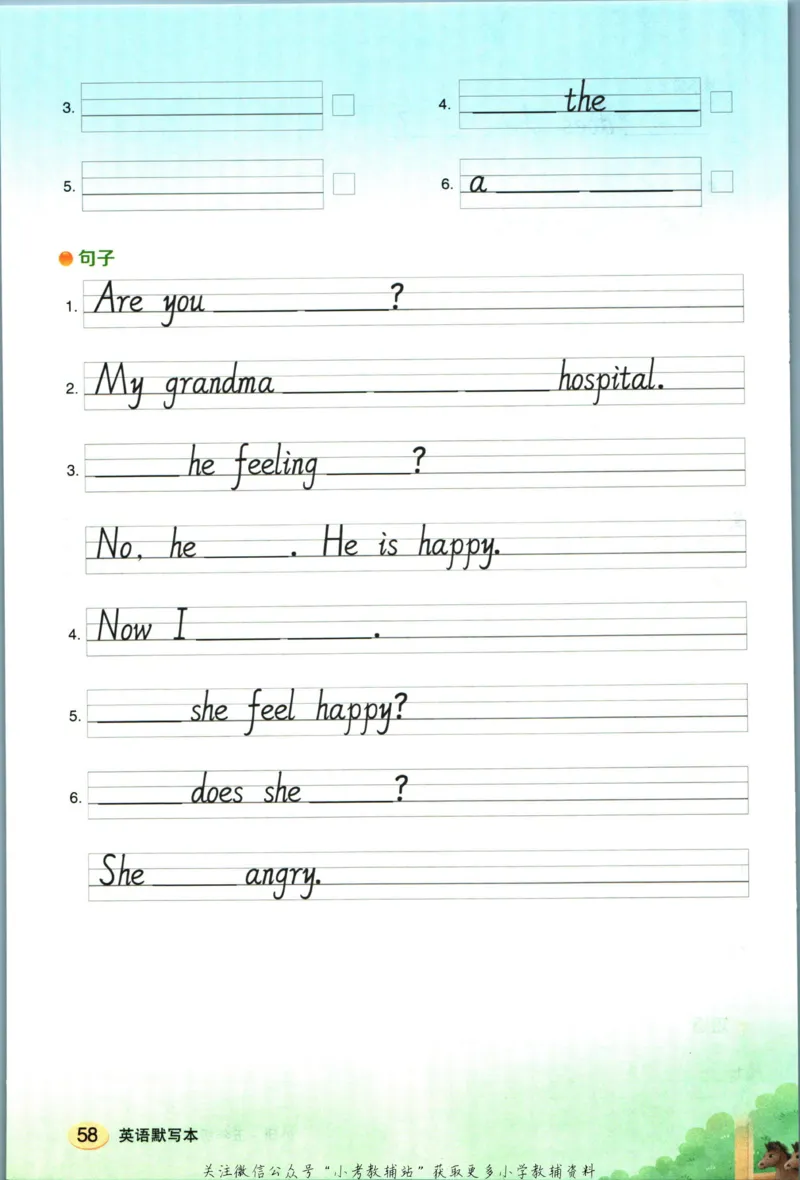 3.
4. ______ the ______
5.
6. a ______ ______
句子
1. Are you ______ ______?
2. My grandma ______ ______ ______ hospital.
3. ______ he feeling ______?
No, he ______. He is happy.
4. Now I ______ ______.
5. ______ she feel happy?
6. ______ does she ______?
She ______ angry.
58 英语默写本
关注微信公众号“小考教辅站”获取更多小学教辅资料